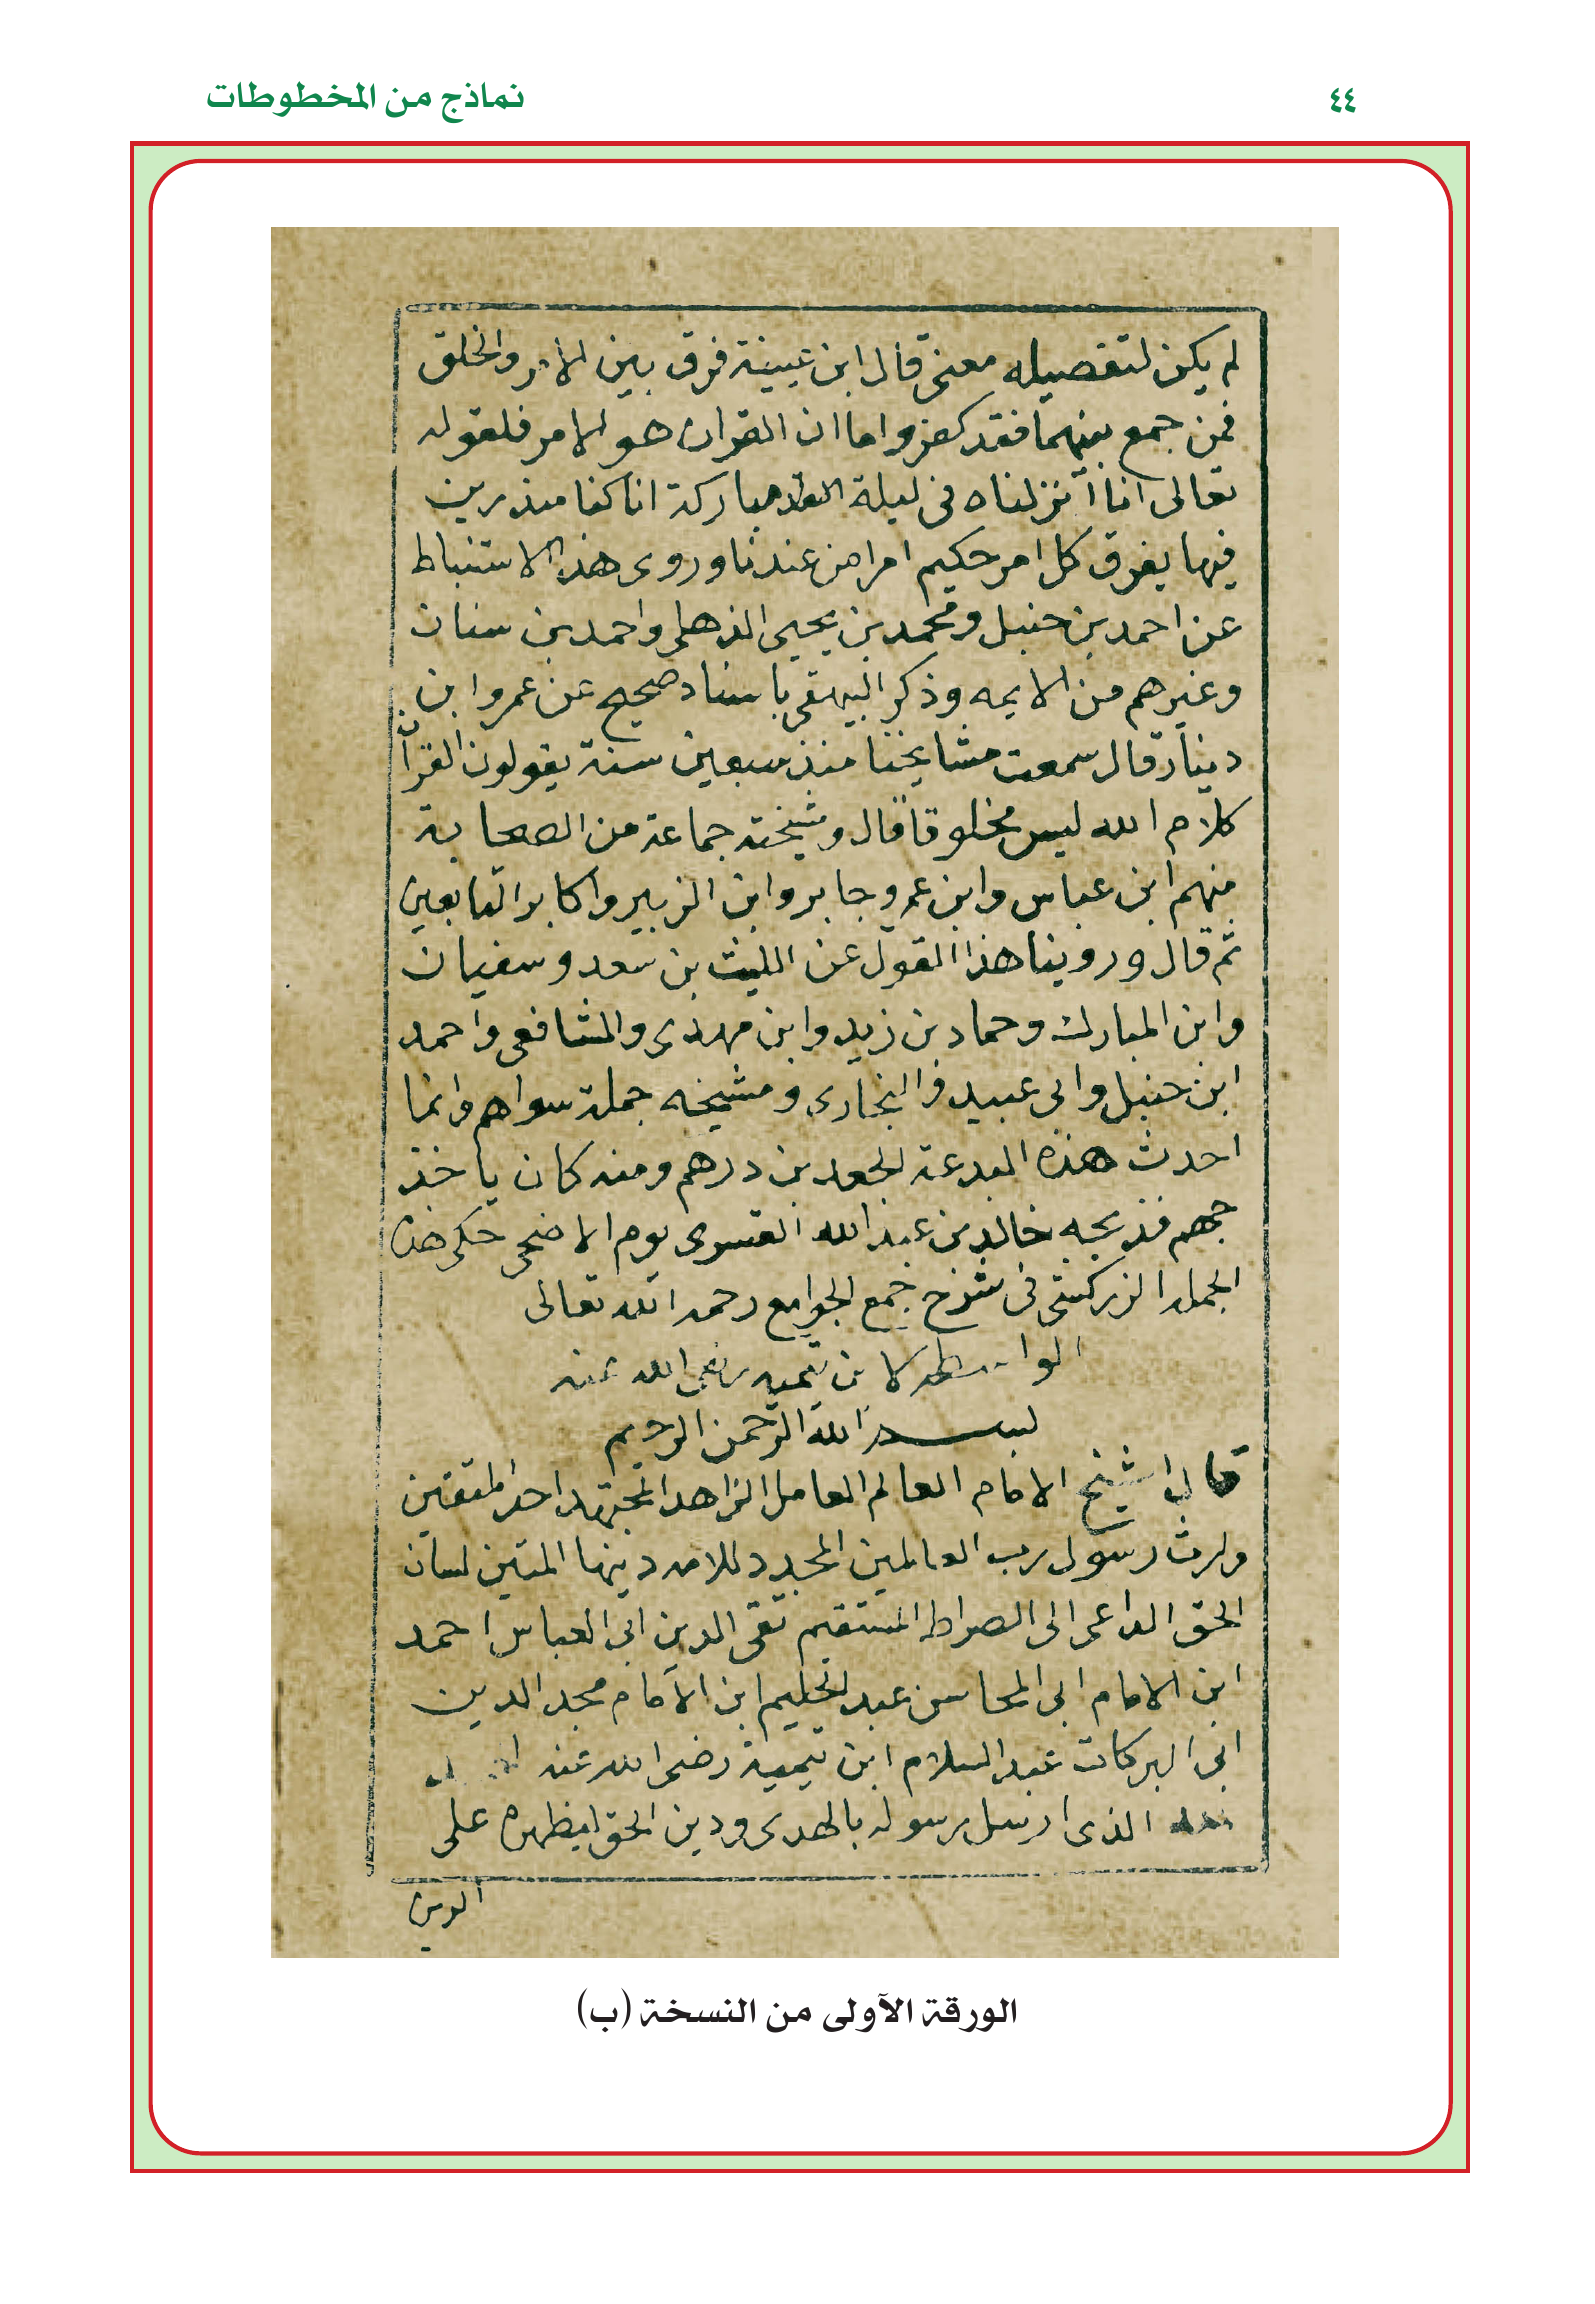 ٤٤
نماذج من المخطوطات
لم يكن لتفصيله معنى قال ابن عيينة فرق بين الامر والخلق
فمن جمع بينهما فقد كفر واما ان القران هو الامر فلقوله
تعالى انا انزلناه في ليلة مباركة انا كنا منذرين
فيها يفرق كل امر حكيم امرا من عندنا وروى هذا الاستنباط
عن احمد بن حنبل ومحمد بن يحيى الذهلى واحمد بن سنان
وغيرهم من الايمه وذكر البيهقى باسناد صحيح عن عمرو ابن
دينار قال سمعت مشايخنا منذ سبعين سنة يقولون القرآن
كلام الله ليس مخلوقا قال ومشيخته جماعة من الصحابة
منهم ابن عباس وابن عمر وجابر وابن الزبير واكابر التابعين
ثم قال وروينا هذا القول عن الليث بن سعد وسفيان
وابن المبارك وحماد بن زيد وابن مهدى والشافعى واحمد
ابن حنبل وابى عبيد والبخارى ومشيخه جملة سواهم وانما
احدث هذه البدعة الجعد بن درهم ومنه كان ياخذ
جهم فذبحه خالد بن عبد الله القسرى يوم الاضحى حكى هذه
الجمله الزركشى فى شرح جمع الجوامع رحمه الله تعالى
الواسطه لابن تيميه رضى الله عنه
بسم الله الرحمن الرحيم
قال الشيخ الامام العالم العامل الزاهد المجتهد احد المتقين
وارث رسول رب العالمين المجدد للامه دينها المتين لسان
الحق الداعى الى الصراط المستقيم تقى الدين ابى العباس احمد
ابن الامام ابى المحاسن عبد الحليم ابن الامام مجد الدين
ابى البركات عبد السلام ابن تيمية رضى الله عنه
لله الذى ارسل رسوله بالهدى ودين الحق ليظهره على
الدين
الورقة الآولى من النسخة (ب)